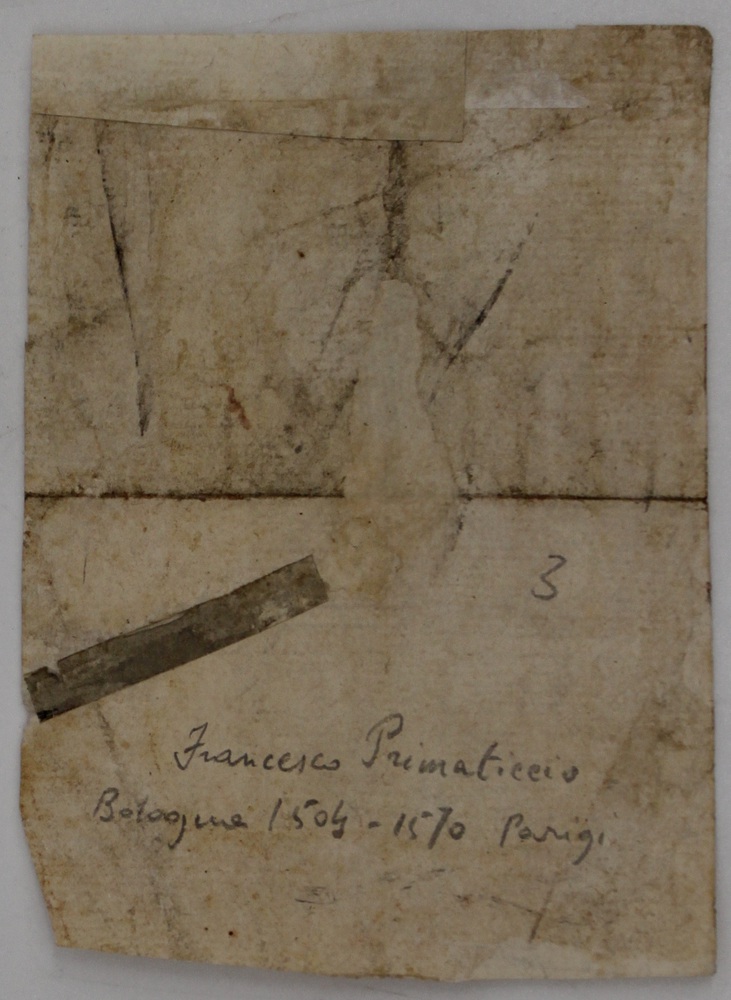 3
Francesco Primaticcio
Bologna 1504 - 1570 Parigi